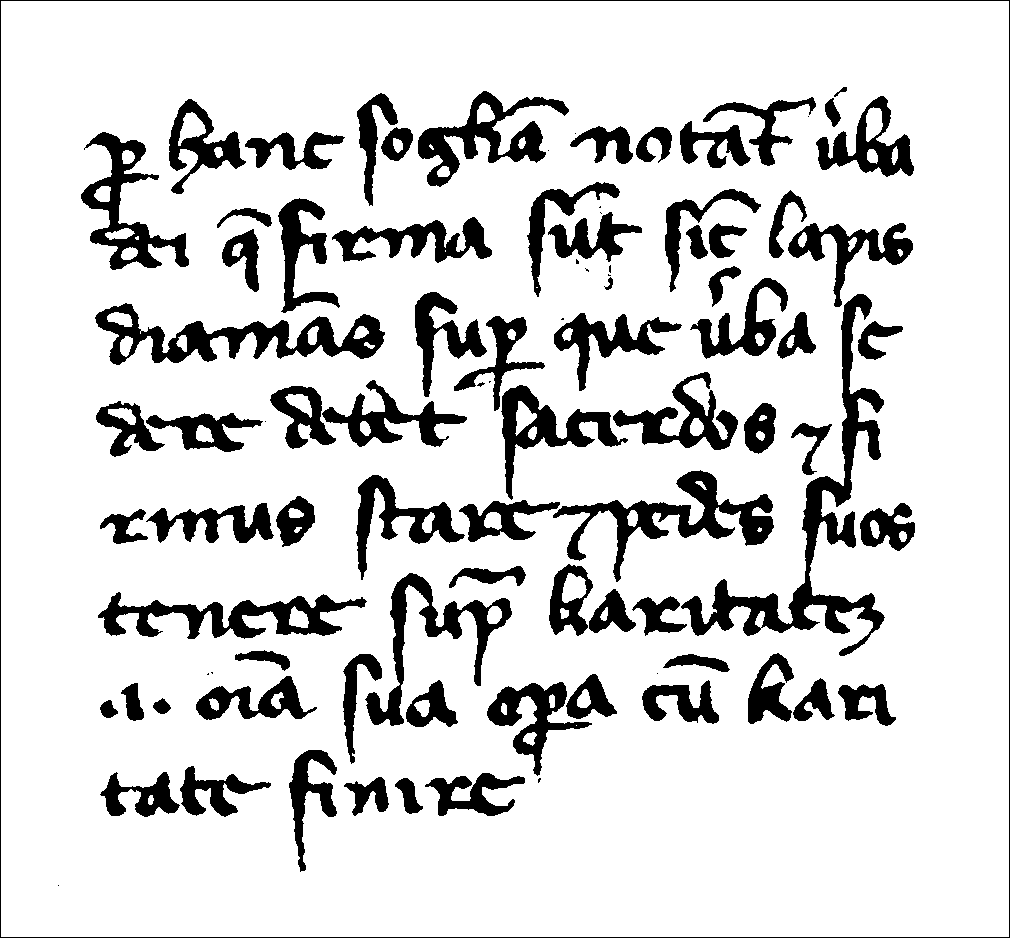 ꝑ hanc sogliā notāt̄ u̓ba
dei q̄ firma sūt sic̄ lapis
diamās suꝑ que u̓ba se
dere debēt sacerdos ⁊ fi
rmus stare ⁊ pedes suos
tenere sup̄ karitateꝫ
.i. oīa sua oꝑa cū kari
tate finire